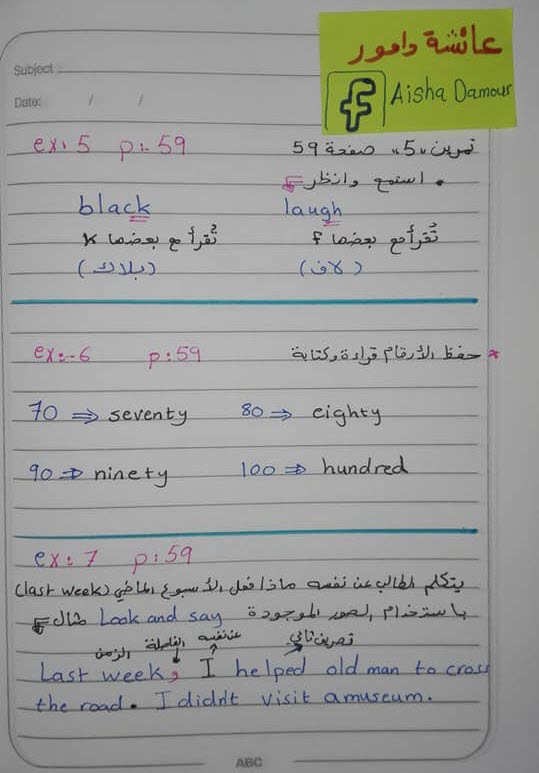 عائشة دامور
Aisha Damour
Subject
Date: / /
ex: 5 p: 59 تمرين "5" صفحة 59
• استمع وانظر
black laugh
تُقرأ مع بعضها k تُقرأ مع بعضها f
(بلاك) (لاف)
ex:-6 p:59 * حفظ الأرقام قراءة وكتابة
70 ⇒ seventy 80 ⇒ eighty
90 ⇒ ninety 100 ⇒ hundred
ex: 7 p:59
يتكلم الطالب عن نفسه ماذا فعل الأسبوع الماضي (last week)
باستخدام الصور الموجودة Look and say مثال
الزمن الفاصلة عن نفسه تصريف ثاني
Last week, I helped old man to cross
the road. I didn't visit a museum.
ABC